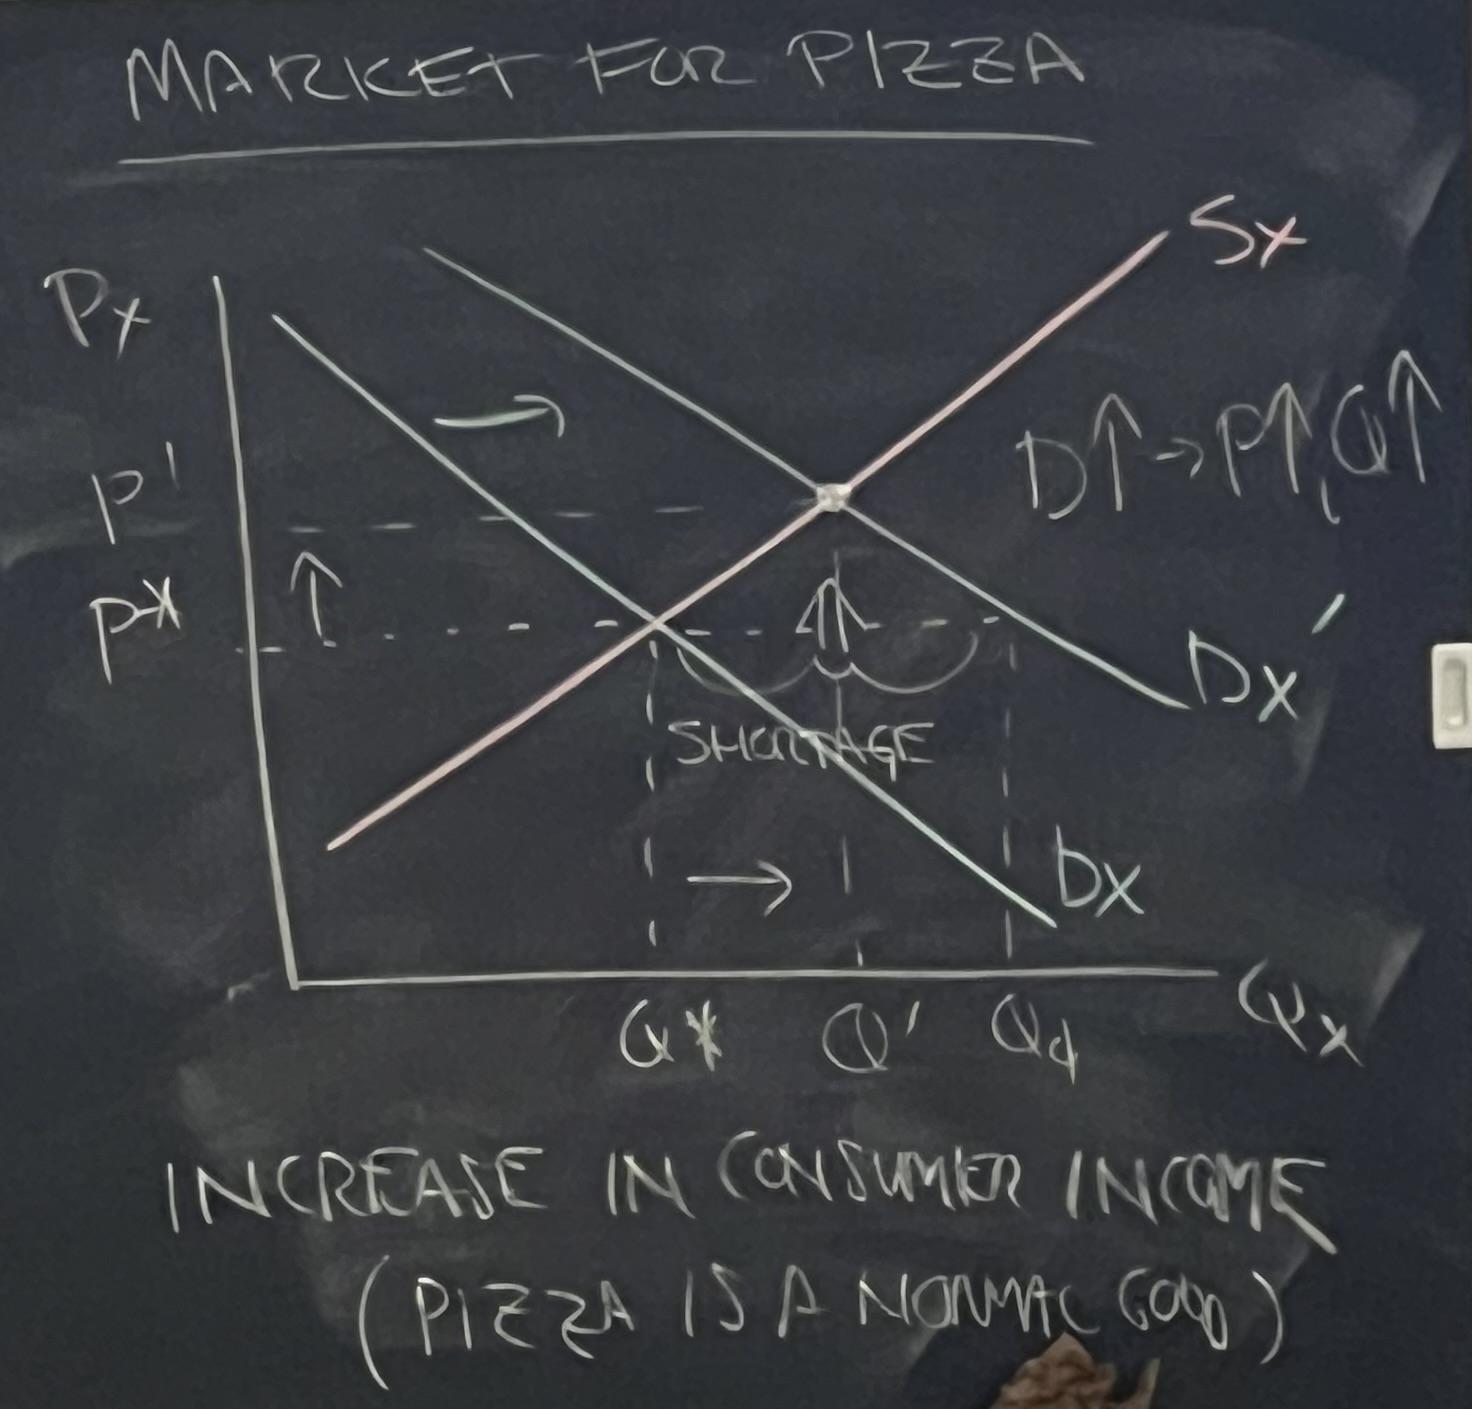 MARKET FOR PIZZA
Sx
Px
D↑→P↑, Q↑
P'
P*
Dx'
SHORTAGE
Dx
Q* Q' Qd Qx
INCREASE IN CONSUMER INCOME
(PIZZA IS A NORMAL GOOD)